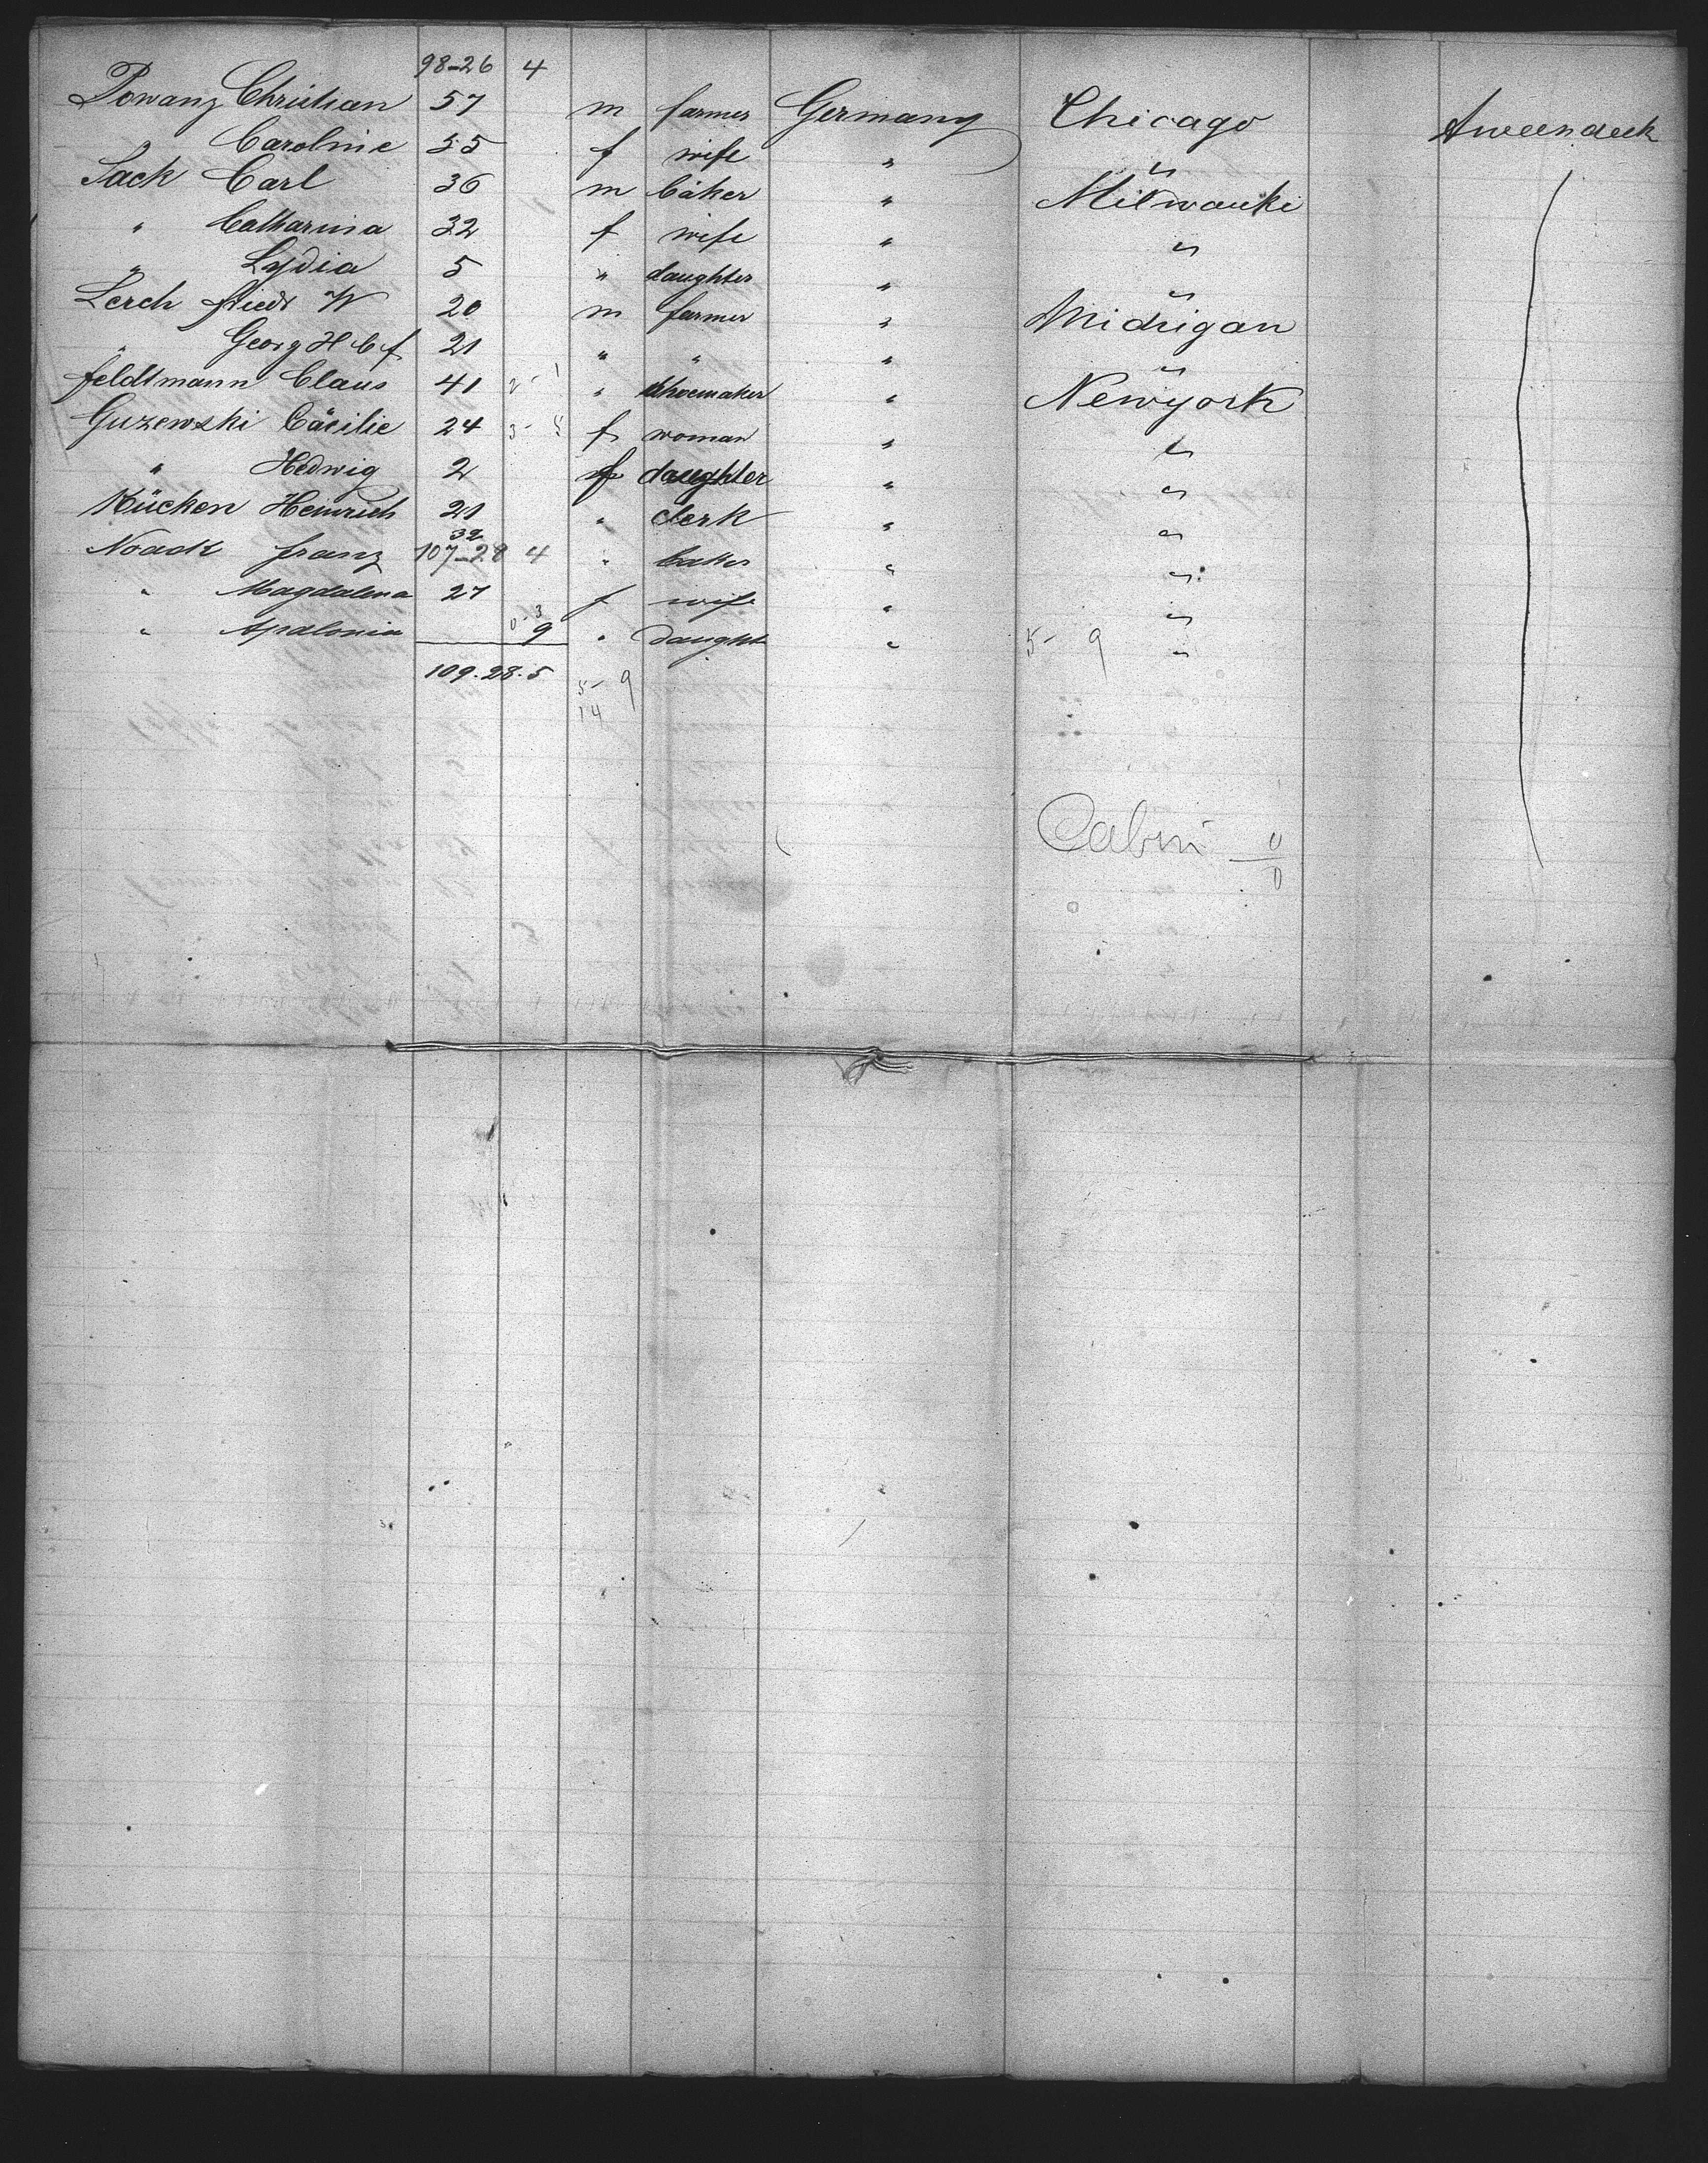 98-26 4
Powanz Christian 57 m farmer Germany Chicago Tweendeck
Caroline 55 f wife " "
Sack Carl 36 m baker " Milwauki
" Catharina 32 f wife " "
" Lydia 5 " daughter " "
Lerch friedr W 20 m farmer " Michigan
" Georg H C f 21 " " " "
feldtmann Claus 41 2-1 " shoemaker " Newyork
Guzewski Cäcilie 24 f woman " "
" Hedwig 2 f daughter " "
Kücken Heinrich 21 " clerk " "
32
Noack franz 107-28 4 " baker " "
" Magdalena 27 f wife " "
0-3
" Apalonia 9 " Daught " "
5- 9
109.28.5
5- 9
14
Cabin 0
0